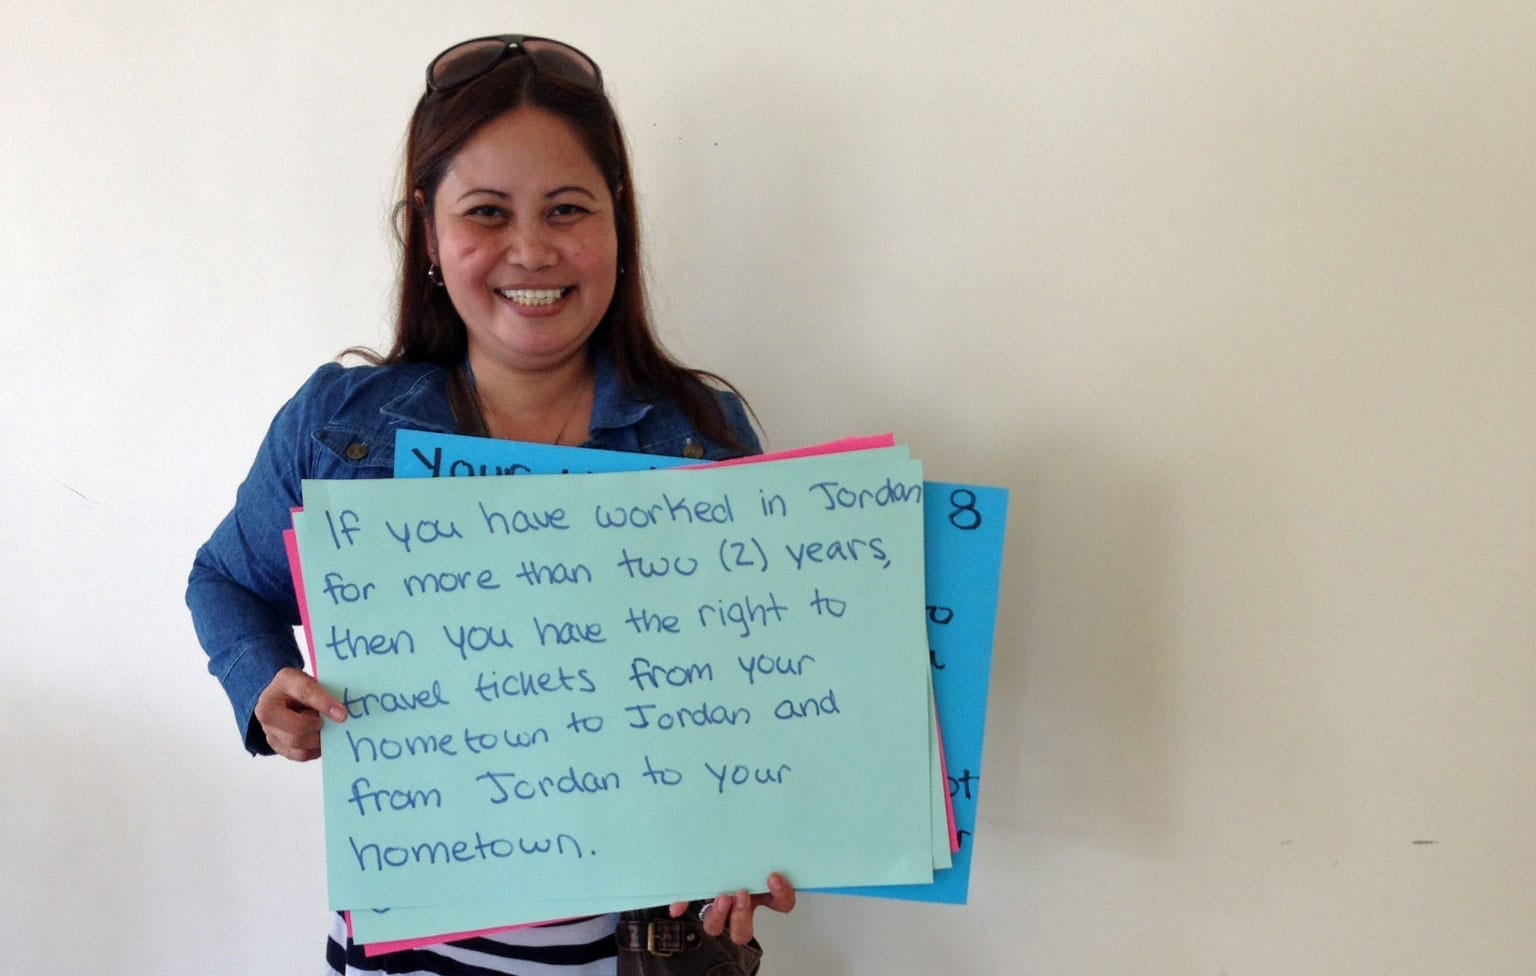 Your
8
If you have worked in Jordan
for more than two (2) years,
then you have the right to
travel tickets from your
hometown to Jordan and
from Jordan to your
hometown.